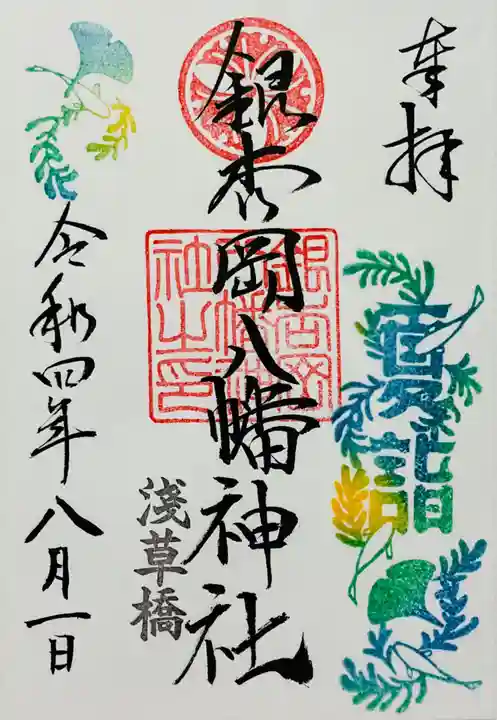 奉拝
夏詣
銀杏岡八幡神社
銀杏岡
八幡神
社之印
浅草橋
令和四年八月一日